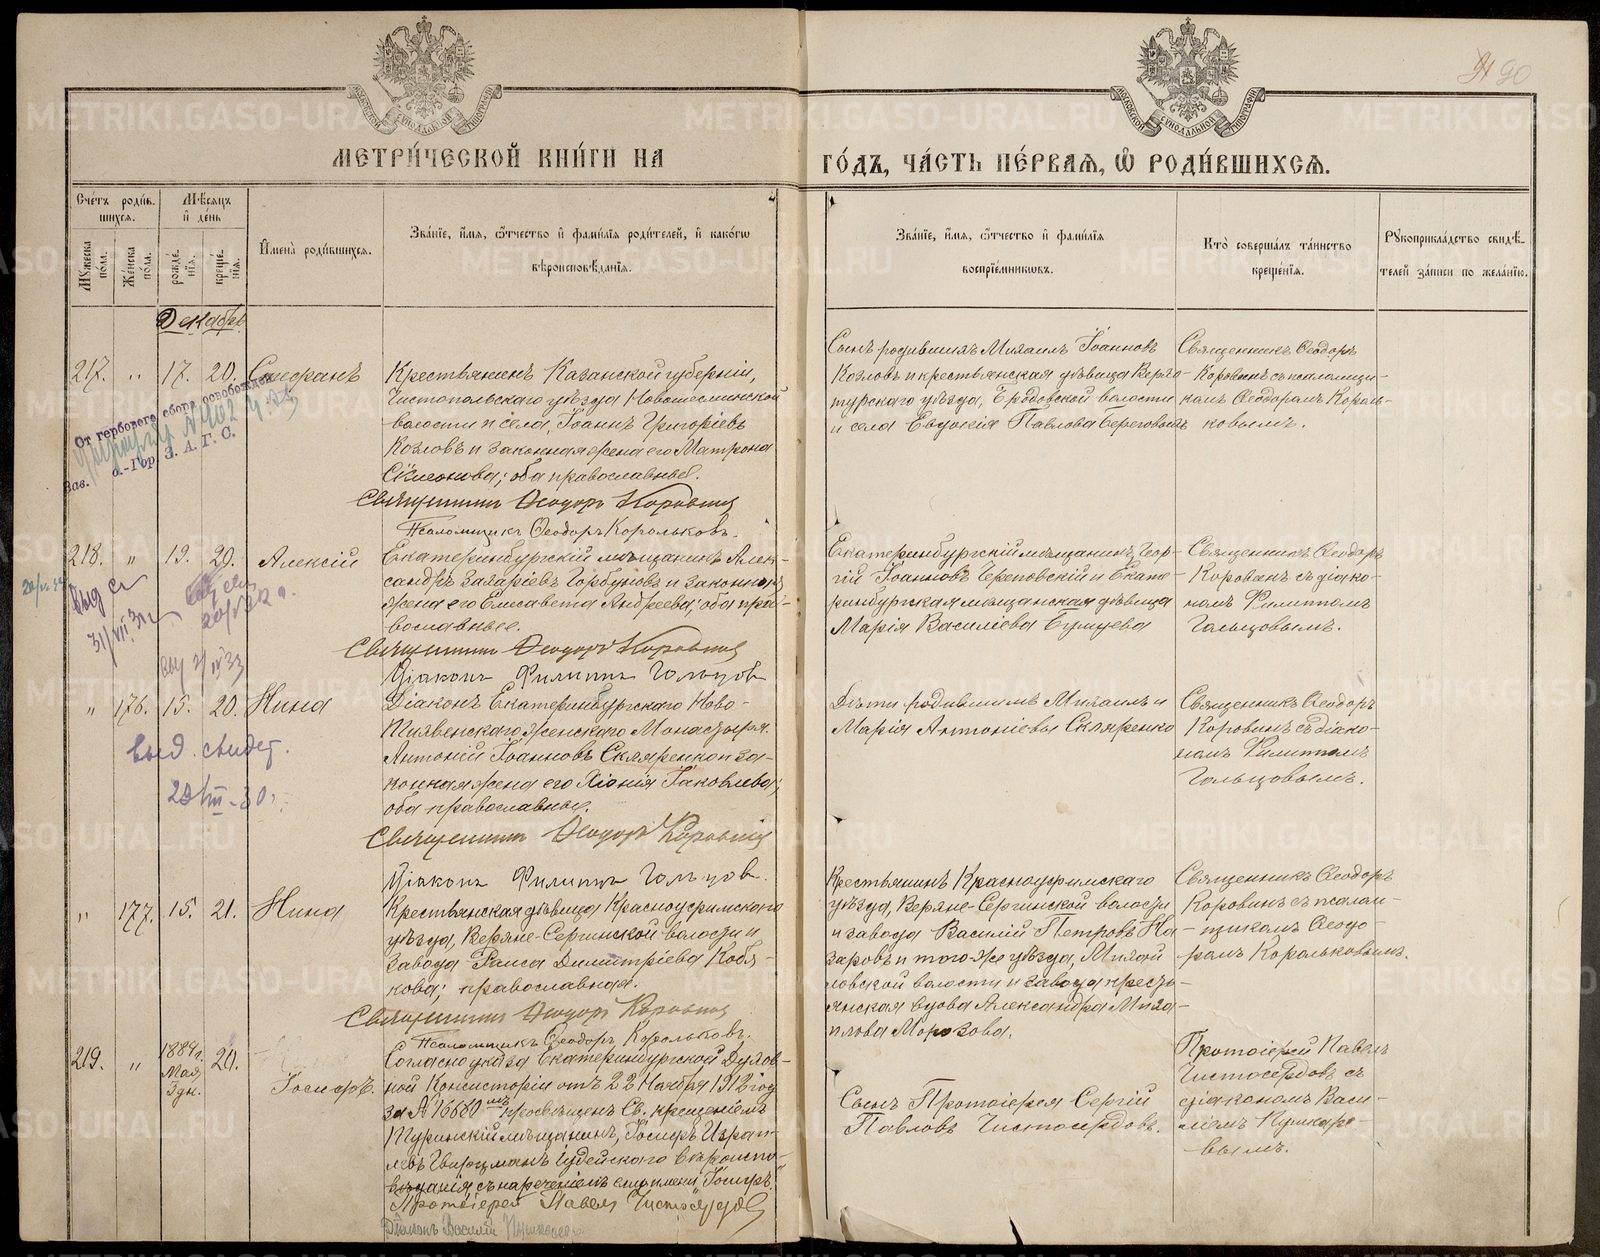 90
МЕТРИ́ЧЕСКОЙ КНИ́ГИ НА
ГО́ДЪ, ЧА́СТЬ ПЕ́РВАѦ, Ѡ҆ РОДИ́ВШИХСѦ.
Сче́тъ роди́в-
шихся.
Мѣ́сяцъ
и де́нь
Му́жеска по́ла.
Же́нска по́ла.
рожде́-
нїя.
креще́-
нїя.
Имена̀ роди́вшихся.
Зва́нїе, и́мя, о́тчество и фами́лїя роди́телей, и како́гѡ
вѣроисповѣ́данїя.
Зва́нїе, и́мя, о́тчество и фами́лїя
воспрїе́мниковъ.
Кто̀ соверша́лъ та́инство
креще́нїя.
Рукоприкла́дство свидѣ́-
телей за́писи по жела́нїю.
Декабрь
217. " 17. 20. Стефанъ
Крестьянинъ Казанской губерніи,
Чистопольскаго уѣзда Новошешминской
волости и села, Іоаннъ Григоріевъ
Козловъ и законная жена его Матрона
Симеонова; оба православные.
Священникъ Ѳеодоръ Коровинъ
Псаломщикъ Ѳеодоръ Корольковъ.
Сынъ родившихъ Михаилъ Іоанновъ
Козловъ и крестьянская дѣвица Верхо-
турскаго уѣзда, волости
и села Евдокія Павлова Береговыхъ
Священникъ Ѳеодоръ
Коровинъ съ псаломщи-
комъ Ѳеодоромъ Король-
ковымъ.
От гербового сбора освобожден
Зав. о.-Гор. З. А. Г. С.
218. " 19. 20. Алексій
Екатеринбургскій мѣщанинъ Алек-
сандръ Захаріевъ Горбуновъ и законная
жена его Елисавета Андреева; оба пра-
вославные.
Священникъ Ѳеодоръ Коровинъ
Діаконъ Филиппъ Гольцов
Екатеринбургскій мѣщанинъ Геор-
гій Іоанновъ Череповскій и Екате-
ринбургская мѣщанская дѣвица
Марія Василіева
Священникъ Ѳеодоръ
Коровинъ съ діако-
номъ Филиппомъ
Гольцовымъ.
" 176. 15. 20. Нина
Діаконъ Екатеринбургскаго Ново-
Тихвенскаго женскаго Монастыря
Антоній Іоанновъ Скляренко и за-
конная жена его Хіонія Іаковлева;
оба православные.
Священникъ Ѳеодоръ Коровинъ
Діаконъ Филиппъ Гольцов.
Дѣти родившихъ Михаилъ и
Марія Антоніевы Скляренко
Священникъ Ѳеодоръ
Коровинъ съ діако-
номъ Филиппомъ
Гольцовымъ.
выд. свидет.
" 177. 15. 21. Нина
Крестьянская дѣвица Красноуфимскаго
уѣзда, Верхне-Сергинской волости и
завода Раиса Димитріева Кобя-
кова; православная.
Священникъ Ѳеодоръ Коровинъ
Псаломщикъ Ѳеодоръ Корольковъ.
Крестьянинъ Красноуфимскаго
уѣзда, Верхне-Сергинской волости
и завода Василій Петровъ На-
заровъ и того-же уѣзда, Михай-
ловской волости и завода кресть-
янская вдова Александра Миха-
илова Морозова.
Священникъ Ѳеодоръ
Коровинъ съ псалом-
щикомъ Ѳеодо-
ромъ Корольковымъ.
219. " 1889г. Мая 3дн. 20. Іосифъ.
Согласно указа Екатеринбургской Духов-
ной Консисторіи отъ 22 Ноября 1912 год
за № 16680 просвѣщенъ Св. крещеніемъ
Туринскій мѣщанинъ, Іосифъ Израи-
левъ Гвирцманъ Іудейскаго вѣроиспо-
вѣданія съ нареченіемъ ему имени "Іосифъ".
Протоіерей Павелъ Чистосердов
Діаконъ Василій Пушкарев
Сынъ Протоіерея Сергій
Павловъ Чистосердовъ.
Протоіерей Павелъ
Чистосердовъ съ
діакономъ Васи-
ліемъ Пушкаре-
вымъ.
METRIKI.GASO-URAL.RU